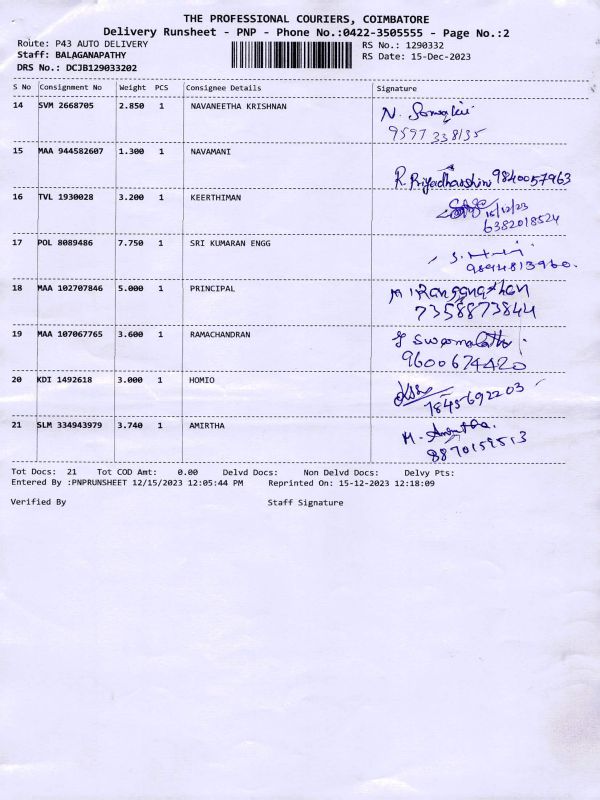 THE PROFESSIONAL COURIERS, COIMBATORE
Delivery Runsheet - PNP - Phone No.:0422-3505555 - Page No.:2
Route: P43 AUTO DELIVERY RS No.: 1290332
Staff: BALAGANAPATHY RS Date: 15-Dec-2023
DRS No.: DCJB129033202
S No Consignment No Weight PCS Consignee Details Signature
14 SVM 2668705 2.850 1 NAVANEETHA KRISHNAN N.
9597338135
15 MAA 944582607 1.300 1 NAVAMANI
R. Priyadharshini 9840057963
16 TVL 1930028 3.200 1 KEERTHIMAN
15/12/23
6382018524
17 POL 8089486 7.750 1 SRI KUMARAN ENGG
9894813960.
18 MAA 102707846 5.000 1 PRINCIPAL
7358873844
19 MAA 107067765 3.600 1 RAMACHANDRAN
9600674420
20 KDI 1492618 3.000 1 HOMIO
7845692203
21 SLM 334943979 3.740 1 AMIRTHA M. Amirtha.
8870159513
Tot Docs: 21 Tot COD Amt: 0.00 Delvd Docs: Non Delvd Docs: Delvy Pts:
Entered By :PNPRUNSHEET 12/15/2023 12:05:44 PM Reprinted On: 15-12-2023 12:18:09
Verified By Staff Signature